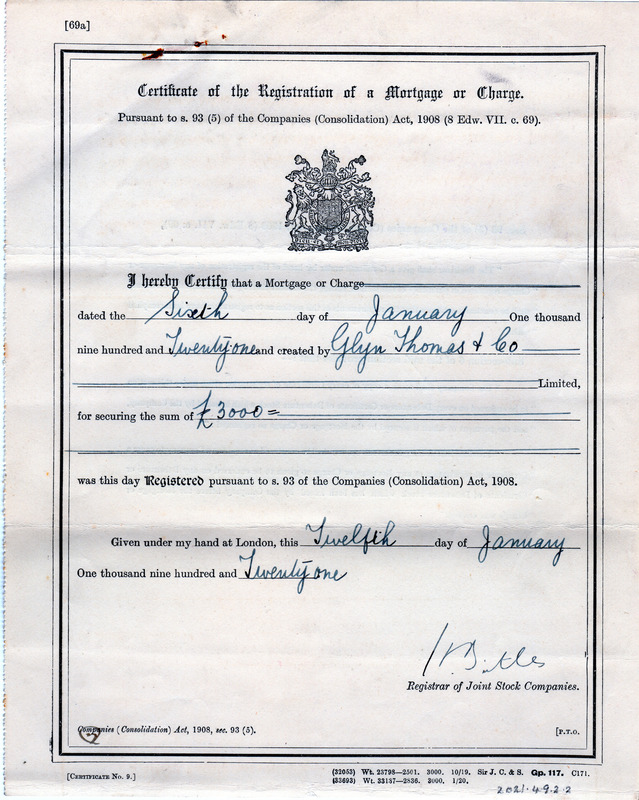 [69a]
Certificate of the Registration of a Mortgage or Charge.
Pursuant to s. 93 (5) of the Companies (Consolidation) Act, 1908 (8 Edw. VII. c. 69).
I hereby Certify that a Mortgage or Charge
dated the Sixth day of January One thousand
nine hundred and Twenty one and created by Glyn Thomas & Co
Limited,
for securing the sum of £3000=
was this day Registered pursuant to s. 93 of the Companies (Consolidation) Act, 1908.
Given under my hand at London, this Twelfth day of January
One thousand nine hundred and Twenty one
Registrar of Joint Stock Companies.
Companies (Consolidation) Act, 1908, sec. 93 (5).
[P.T.O.
[CERTIFICATE No. 9.]
(32053) Wt. 23798—2501. 3000. 10/19. Sir J. C. & S. Gp. 117. C171.
(33693) Wt. 33137—2836. 3000. 1/20.
2021.49.2.2